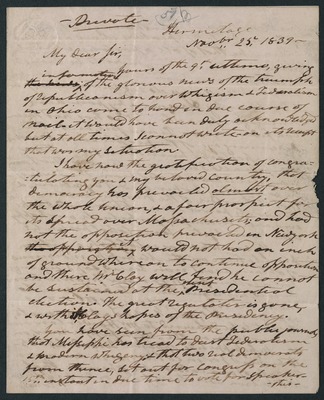 — Private —
Hermitage
Novbr. 25th 1839 —
My dear Sir,
yours of the 9th ultimo, giving
information
of the glorious news of the triumph
of republicanism over Whigism & Federalism
in Ohio came to hand in due course of
mail, & would have been duly acknowledged
but at all times I cannot write on its receipt
that was my situation.
I have now the gratification of congra-
tulating you & my beloved country, that
democracy has prevailed almost over
the whole Union, & a fair prospect for
its spread over Massachusetts, and had
not the opposition prevailed in New york
would not have had an inch
of ground whereon to continue opposition
and there Mr Clay will find he cannot
be sustained at the next Presidential
election. The great regulator is gone,
& with it Clays hopes of the Presidency.
You have seen from the public journals
that Missippi has tread to dust Federalism
& modern whigery, & that two real democrats
from thence, set out for congress on the
15th instant in due time to vote for speaker
— this —